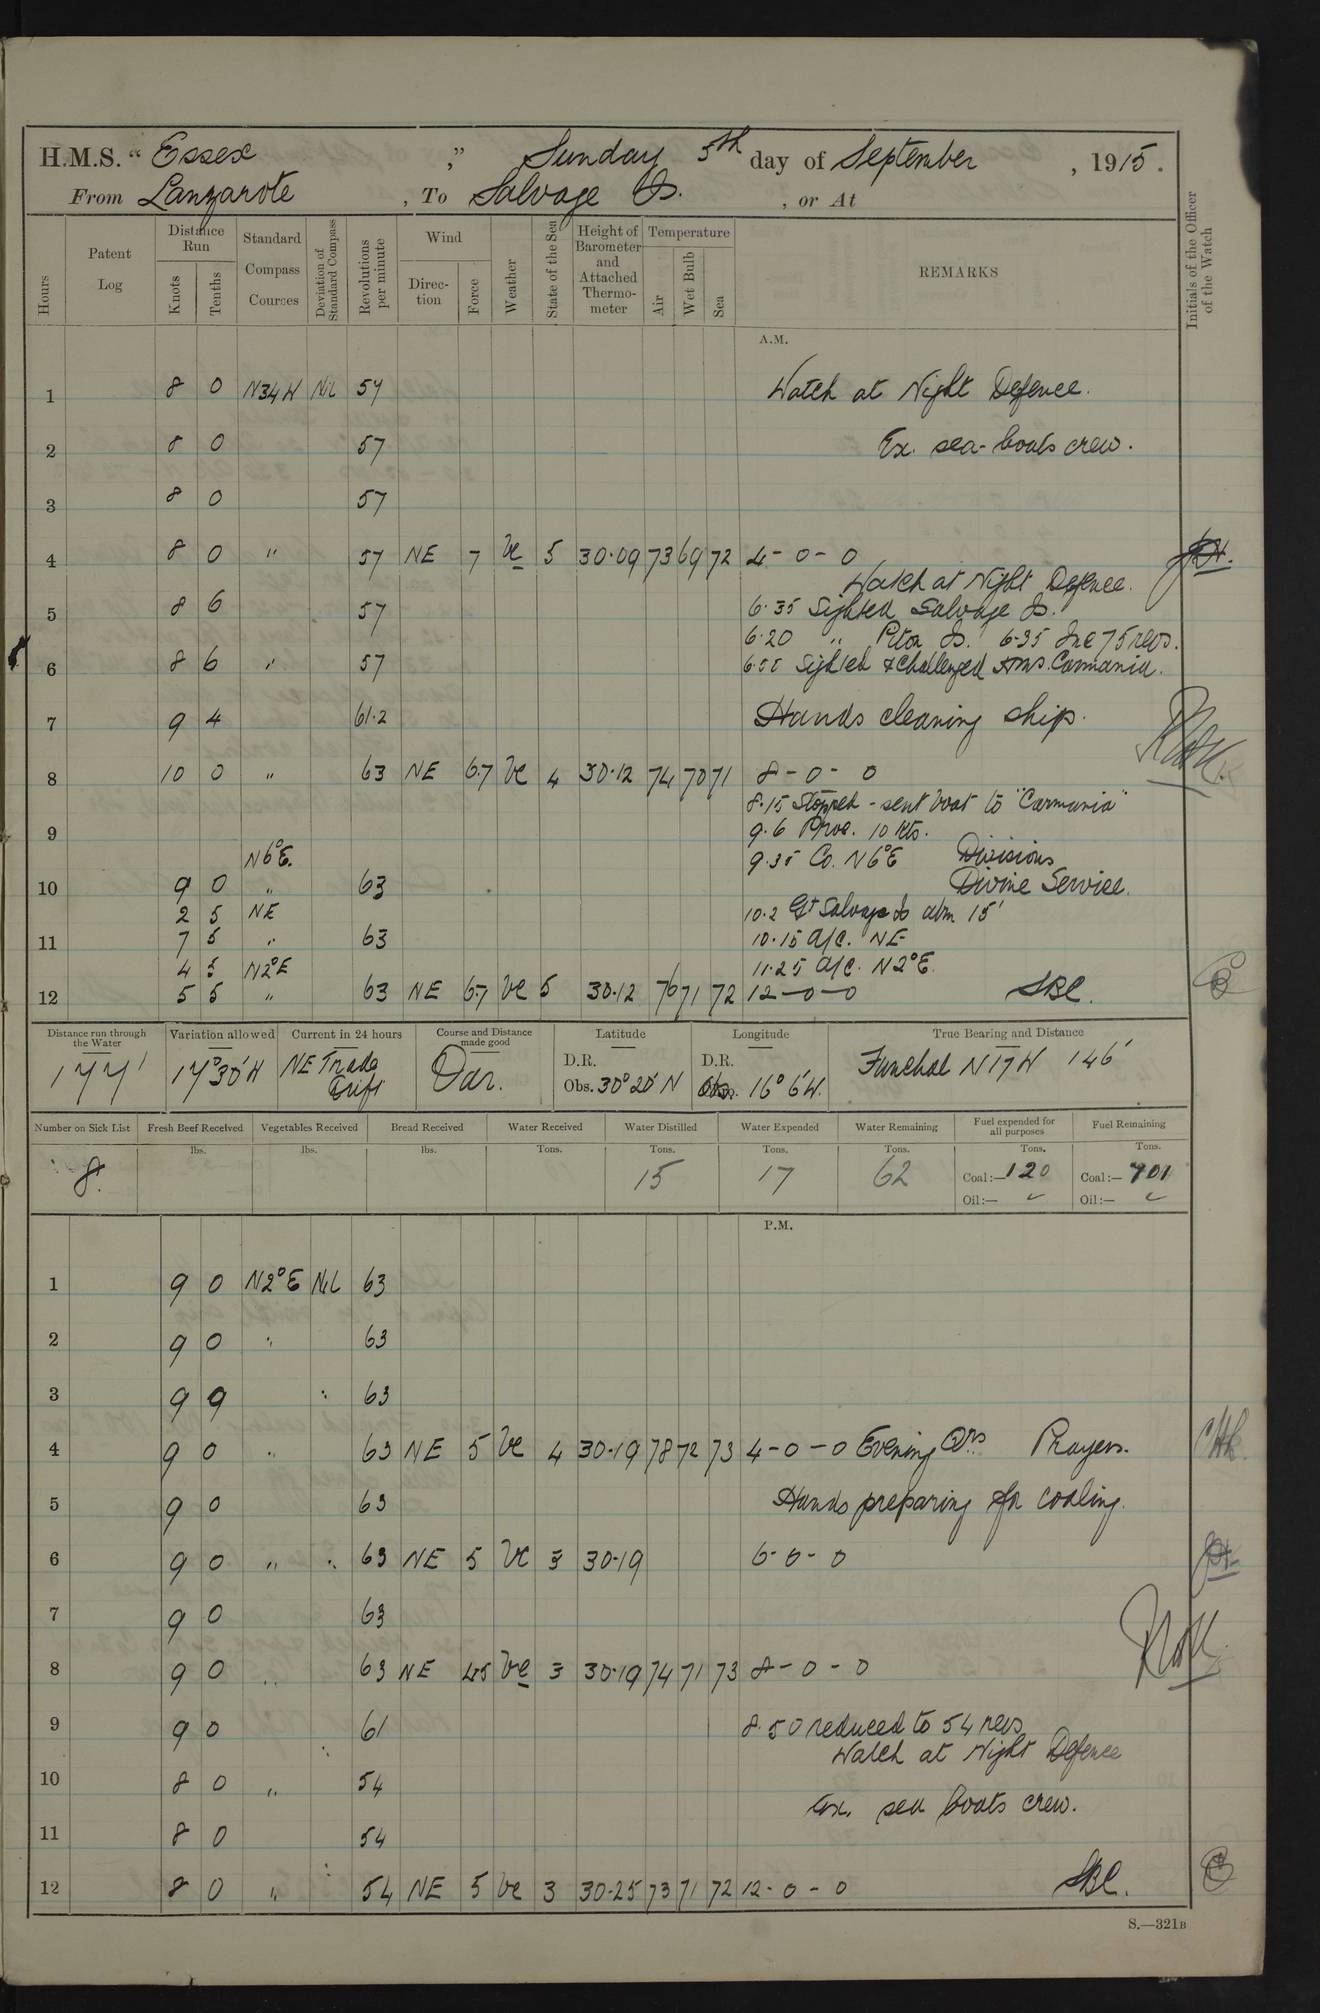 H.M.S. “ Essex ,” Sunday 5th day of September , 1915 .
From Lanzarote , To Salvage Is. , or At
Hours
Patent Log
Distance Run
Knots Tenths
Standard Compass Courses
Deviation of Standard Compass
Revolutions per minute
Wind
Direction Force
Weather
State of the Sea
Height of Barometer and Attached Thermometer
Temperature
Air Wet Bulb Sea
REMARKS
Initials of the Officer of the Watch
A.M.
1 8 0 N34W Nil 57 Watch at Night Defence.
2 8 0 57 Ex. sea-boats crew.
3 8 0 57
4 8 0 " 57 NE 7 bc 5 30.09 73 69 72 4-0-0
Watch at Night Defence.
5 8 6 57 6.35 Sighted Salvage Is.
6.20 " Piton Is. 6.35 Inc 75 revs.
6 8 6 " 57 6.55 Sighted & challenged HMS. Carmania.
7 9 4 61.2 Hands cleaning ship.
8 10 0 " 63 NE 6.7 bc 4 30.12 74 70 71 8-0-0
8.15 Stopped - sent boat to "Carmania"
9 9.6 Proc. 10 kts.
N6°E. 9.35 Co. N6°E Divisions
10 9 0 " 63 Divine Service.
2 5 NE 10.2 Gt Salvage Is abm 15'
11 7 5 " 63 10.15 a/c. NE
4 5 N2°E 11.25 a/c. N2°E.
12 5 5 " 63 NE 6.7 bc 5 30.12 76 71 72 12-0-0 SBC.
Distance run through the Water
Variation allowed
Current in 24 hours
Course and Distance made good
Latitude
Longitude
True Bearing and Distance
177' 17°30'W NE Trade Drift Var. D.R. Obs. 30°20'N D.R. Obs. 16°6'W. Funchal N17W 146'
Number on Sick List
Fresh Beef Received
Vegetables Received
Bread Received
Water Received
Water Distilled
Water Expended
Water Remaining
Fuel expended for all purposes
Fuel Remaining
lbs. lbs. lbs. Tons. Tons. Tons. Tons. Tons. Tons.
8. 15 17 62 Coal:— 120 Coal:— 701
Oil:— Oil:—
P.M.
1 9 0 N2°E Nil 63
2 9 0 " 63
3 9 9 " 63
4 9 0 " 63 NE 5 bc 4 30.19 78 72 73 4-0-0 Evening Qrs Prayers.
5 9 0 63 Hands preparing for coaling.
6 9 0 " " 63 NE 5 bc 3 30.19 6-0-0
7 9 0 63
8 9 0 " 63 NE 4.5 bc 3 30.19 74 71 73 8-0-0
9 9 0 61 8.50 reduced to 54 revs
" Watch at Night Defence
10 8 0 " 54
Ex. sea boats crew.
11 8 0 54
12 8 0 " " 54 NE 5 bc 3 30.25 73 71 72 12-0-0 SBC.
S.—321B